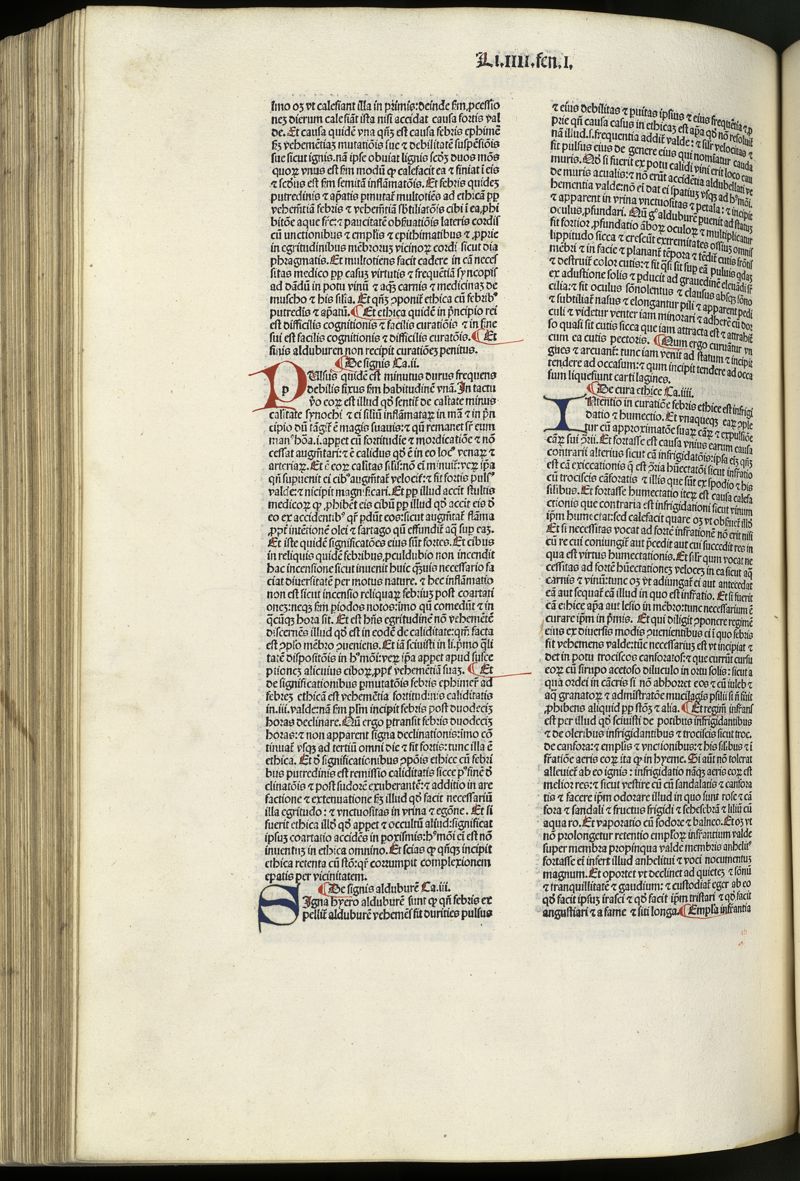 Li.IIII.fen.I.
imo oꝫ vt calefiant illa in primis: deinde fm ꝓcessio
neꝫ dierum calefiāt ista nisi accidat causa fortis val
de. Et causa quidē vna qñꝫ est causa febris ephimē
sue sicut ignis. nā ipse obuiat lignis scd̄ꝫ duos mōs
quoꝝ vnus est fm modū ꝙ calefacit ea ⁊ finiat i eis
⁊ scd̄us est fm semitā inflāmatōis. Et febris quideꝫ
putredinis ⁊ ap̄atis pmutat multotiēs ad ethicā pp
vehemētiā febris ⁊ vehemētiā
cū vnctionibus ⁊ emplis ⁊ epithimatibus ⁊ ꝓprie
in egritudinibus mēbroruꝫ vicinoꝝ cordi sicut dia
phragmatis. Et multotiens facit cadere in eā neces
sitas medico pp casuꝫ virtutis ⁊ frequētiā syncopis
ad dādū in potu vinū ⁊ aqꝫ carnis ⁊ medicinaꝫ de
muscho ⁊ his silia. Et qñꝫ ꝯponit̄ ethica cū febribꝰ
putredis ⁊ ap̄atū. Et ethica quidē in p̄ncipio rei
est difficilis cognitionis ⁊ facilis curatiōis ⁊ in fine
sui est facilis cognitionis ⁊ difficilis curatōis. Et
finis alduburen non recipit curatiōeꝫ penitus.
De signis Ca.ii.
PUlsus quidē est minutus durus frequens
debilis fixus fm habitudinē vnā. In tactu
ṽo eoꝝ est illud qd̄ sentit̄ de caltate minus
calitate synochi ⁊ ei siliū inflāmataꝝ in mā ⁊ in p̄n
cipio dū tāgit̄ ē magis suauis: ⁊ qn̄ remanet sꝛ eum
cessat augm̄tari: ⁊ ē calidus qd̄ ē in eo locꝰ venaꝝ ⁊
qn̄ supuenit ei cibꝰ augm̄tat̄ velocit̄: ⁊ fit fortis pulsꝰ
valde: ⁊ incipit magnificari. Et pp illud accit stultis
medicoꝝ ꝙ ꝓhibēt eis cibū pp illud qd̄ accit eis d̄
ꝓpt̄ intētionē olei ⁊ sartago qn̄ effundit̄ aq̄ sup eaꝫ.
Et iste quidē significatōes eius sūt fortes. Et cibus
in reliquis quidē febribus ꝓculdubio non incendit
hac incensione sicut inuenit huic qāuis necessario fa
ciat diuersitatē per motus nature. ⁊ hec inflāmatio
non est sicut incensio reliquaꝝ febriuꝫ post coartati
oneꝫ: neqꝫ fm piodos notos: imo qn̄ comedūt ⁊ in
qcūqꝫ hora sit. Et est hn̄s egritudinē nō vehemētē
discernēs illud qd̄ est in eodē de caliditate: qm̄ facta
est ꝓpso mēbro ꝓueniens. Et iā sciuisti in li.p̄mo qli
de significationibus pmutatōis febris ephimeꝝ ad
febreꝫ ethicā est vehemētia fortitudinis caliditatis
in.iii. valde: nā fm plm incipit febris post duodeciꝫ
horas declinare. Qū ergo ptransit febris duodeciꝫ
horas: ⁊ non apparent signa declinationis: imo cō
tinuat̄ vsqꝫ ad tertiū omni die ⁊ fit fortis: tunc illa ē
ethica. Et d̄ significationibus ꝯpōis ethice cū febri
bus putredinis est remissio caliditatis sicce pꝰ finē d̄
clinatōis ⁊ post sudorē exuberantē: ⁊ additio in are
factione ⁊ extenuatione fꝫ illud qd̄ facit necessariū
illa egritudo: ⁊ vnctuositas in vrina ⁊ egōne. Et si
fuerit ethica illd̄ qd̄ appet ⁊ occultū aliud: significat
ipsuꝫ coartatio accidēs in poxismis: hꝰmōi ei est nō
inuentuꝫ in ethica omnino. Et scias ꝙ qn̄qꝫ incipit
ethica retenta cū stō: qꝛ corrumpit complexionem
epatis per vicinitatem.
De signis alduburē Ca.iii.
SIgna hyero alduburē sunt ꝙ qn̄ febris ex
pellit̄ alduburē vehemēs fit durities pulsus
⁊ eius debilitas ⁊ puitas ipsius ⁊ eius frequētia ⁊ ꝓ
prie qn̄ causa casus in ethicaꝫ est ap̄a qd̄ nō resoluit̄
nā illud.s. frequentia addit̄ valde: ⁊ silr velocitas ⁊
fit pulsus eius de genere eius qui nomiatur cauda
muris. Qd̄ si fuerit ex potu calidi vini erit loco cau
de muris acualis: ⁊ nō erūt accidētia aldubellati ve
hementia valde: nō ei dat ei spatiuꝫ vsqꝫ ad hꝰmōi.
⁊ apparent in vrina vnctuositas ⁊ petala: ⁊ incipit
oculus ꝓfundari. Qn̄ gͦ aldubure puenit ad statuꝫ
fit fortior ꝓfundatio ābōꝝ oculoꝝ ⁊ multiplicatur
lippitudo sicca ⁊ crescūt extremitates ossiuꝫ omnis
mēbri ⁊ in facie ⁊ planant̄ tēpora ⁊ tēdit̄ cutis frōtis
⁊ destruit̄ color cutis: ⁊ fit qsi sit sup eā puluis qdaꝫ
ex adustione solis ⁊ pducit ad grauedinē eleuādi su
cilia: ⁊ fit oculus sōnolentus ⁊ clausus absqꝫ sōno
⁊ subtiliat̄ nasus ⁊ elongantur pili ⁊ apparent pedi
culi ⁊ videtur venter iam minorari ⁊ adherē cū dor
so quasi sit cutis sicca que iam attracta est ⁊ attrahit̄
cum ea cutis pectoris. Qum ergo curuātur vn
gues ⁊ arcuant̄: tunc iam venit ad statum ⁊ incipit
tendere ad occasum: ⁊ qum incipit tendere ad occa
sum liquescunt cartilagines.
De cura ethice Ca.iiii.
INtentio in curatiōe febris ethice est infrigi
datio ⁊ humectio. Et vnaqueqꝫ eaꝝ ꝓple
tur cū approximatōe suaꝝ caꝝ ⁊ expulsiōe
caꝝ sui ꝯ̄rii. Et fortasse est causa vnius earum causa
contrarii alterius sicut cā infrigidatōis: ipsa eiꝫ qn̄ꝫ
est cā exiccationis q̄ est ꝯ̄ria hūectatōi sicut infratio
cū trociscis cāforatis ⁊ illis que sūt ex spodio ⁊ his
silibus. Et fortasse humectatio iteꝝ est causa calefa
ctionis que contraria est infrigidationi sicut vinum
ipm humectat: sed calefacit quare oꝫ vt obuiet̄ illd̄
Et si necessitas vocat ad fortē infratōnē nō erit nisi
cū re cui coniungit̄ aut p̄cedit aut cui succedit res in
qua est virtus humectationis. Et silr qum vocat ne
cessitas ad fortē hūectationeꝫ veloceꝫ in ea sicut aq̄
carnis ⁊ vinū: tunc oꝫ vt adiungat̄ ei aut antecedat
eā aut sequat̄ eā illud in quo est infratio. Et si fuerit
cā ethice ap̄a aut lesio in mēbro: tunc necessarium ē
curare ipm in p̄mis. Et qui diligit ꝓponere regimē
eius ex diuersis modis ꝓuenientibus ei i quo febris
fit vehemens valde: tūc necessarius est vt incipiat ⁊
det in potu trociscos canforatos: ⁊ que currūt cursu
eoꝝ cū sirupo acetoso diluculo in ortu solis: sicut a
qua ordei in cācris si nō abhorret eos ⁊ cū iuleb ⁊
aq̄ granatoꝝ ⁊ administratōe mucilagis psilii si n̄ sit
ꝓhibens aliquid pp stōꝫ ⁊ alia. Et regim̄ infrans
est per illud qd̄ sciuisti de potibus infrigidantibus
⁊ de oleribus infrigidantibus ⁊ trociscis sicut troc.
de canfora: ⁊ emplis ⁊ vnctionibus: ⁊ his silibus ⁊ i
fratiōe aeris eoꝝ ita ꝙ in hyeme. Si aūt nō tolerat
alleuiet̄ ab eo ignis: infrigidatio nāqꝫ aeris eoꝝ est
melior res: ⁊ sicut vestire cū cū sandalatis ⁊ canfora
tis ⁊ facere ipm odorare illud in quo sunt rose ⁊ cā
fora ⁊ sandali ⁊ fructus frigidi ⁊ sehesebrā ⁊ liliū cū
aqua ro. Et vaporatio cū fodore ⁊ balneo. Et oꝫ vt
nō prolongetur retentio emploꝝ infrantium valde
super membra propinqua valde membris anhelitꝰ
fortasse ei infert illud anhelitui ⁊ voci nocumentuꝫ
magnum. Et oportet vt declinet ad quieteꝫ ⁊ sōnū
⁊ tranquillitatē ⁊ gaudium: ⁊ custodiat̄ eger ab eo
qd̄ facit ipsuꝫ irasci ⁊ qd̄ facit ipm tristari ⁊ qd̄ facit
angustiari ⁊ a fame ⁊ siti longa. Empla infrantia